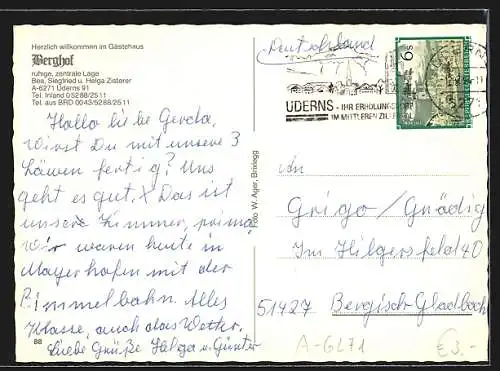 Herzlich willkommen im Gästehaus
Berghof
ruhige, zentrale Lage
Bes. Siegfried u. Helga Zisterer
A-6271 Uderns 91
Tel. Inland 05288/2511
Tel. aus BRD 0043/5288/2511
Hallo liebe Gerda,
wirst Du mit unsere 3
Löwen fertig? Uns
geht es gut. X Das ist
unsere Zimmer, prima,
Wir waren heute in
Mayerhofen mit der
Bimmelbahn. Alles
Klasse, auch das Wetter.
Liebe Grüße Helga u. Günter
88
Foto W. Ayer, Brixlegg
Deutschland
UDERNS - IHR ERHOLUNGSORT
IM MITTLEREN
6 S
An
Grigo / Gnädig
Im Hilgersfeld 40
51427 Bergisch Gladbach
A-6271
€3.-